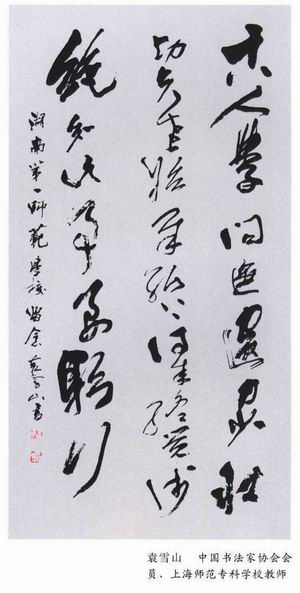 古人學问無遺力少壮
功夫老始成紙上得来终觉浅
絶知此事要躬行
湖南第一师範學校留念袁雪山書
袁雪山　中国书法家协会会
员、上海师范专科学校教师